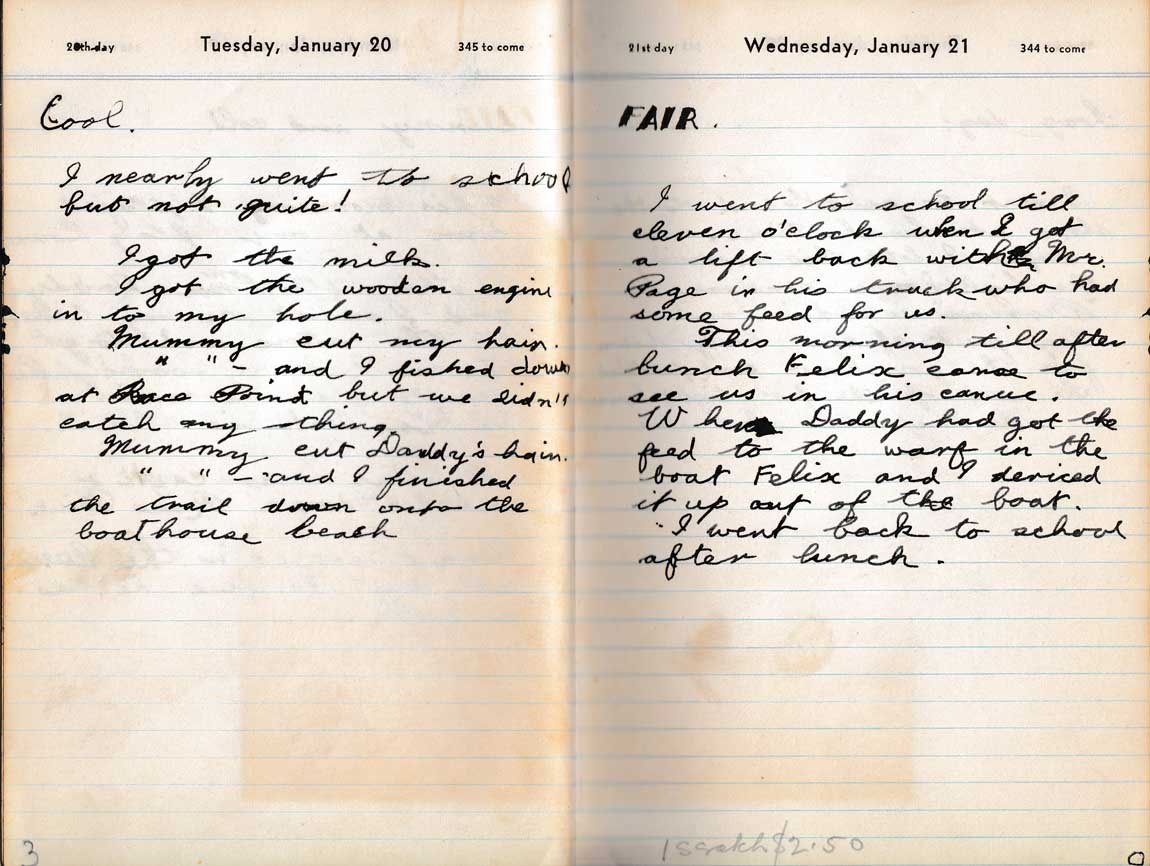 20th day Tuesday, January 20 345 to come
Cool.
I nearly went to school
but not quite!
I got the milk.
I got the wooden engine
in to my hole.
Mummy cut my hair.
" " - and I fished down
at Race Point but we didn't
catch any thing.
Mummy cut Daddy's hair.
" " - and I finished
the trail down onto the
boathouse beach
3
21st day Wednesday, January 21 344 to come
FAIR.
I went to school till
eleven o'clock when I got
a lift back with Mr.
Page in his truck who had
some feed for us.
This morning till after
lunch Felix came to
see us in his canue.
When Daddy had got the
feed to the warf in the
boat Felix and I dericed
it up out of the boat.
I went back to school
after lunch.
$2.50